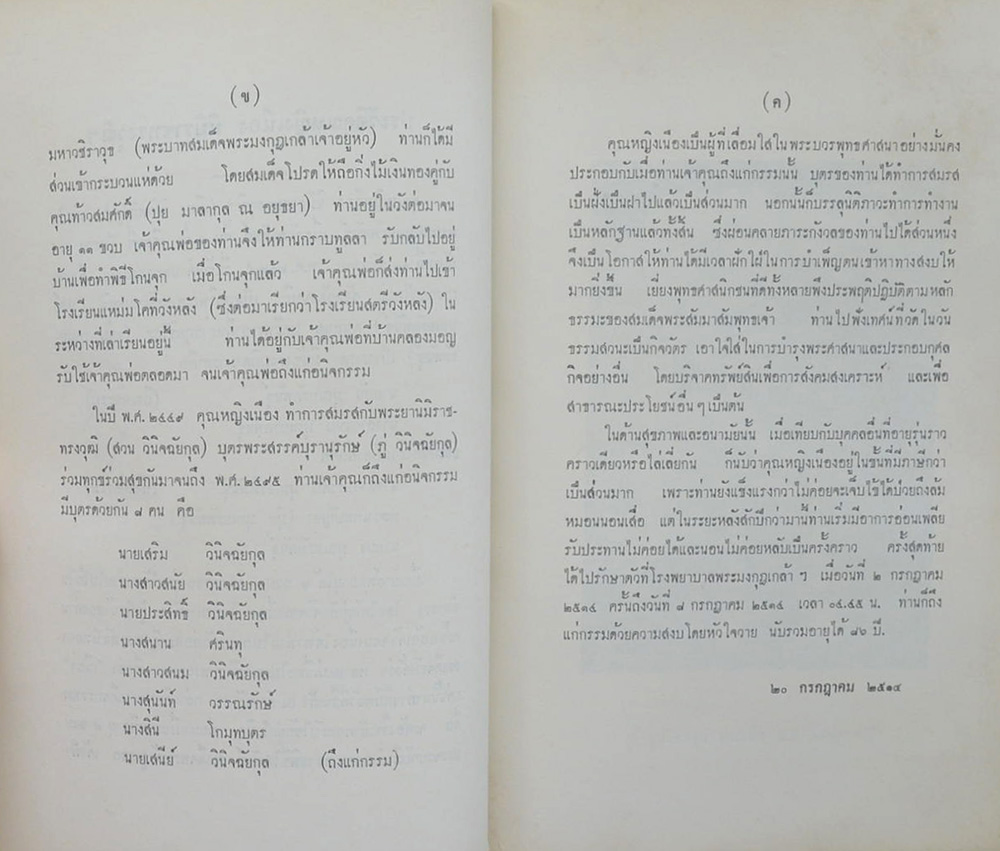 (ข)
มหาวชิราวุธ (พระบาทสมเด็จพระมงกุฎเกล้าเจ้าอยู่หัว) ท่านก็ได้มี
ส่วนเข้ากระบวนแห่ด้วย โดยสมเด็จโปรดให้ถือกิ่งไม้เงินทองคู่กับ
คุณท้าวสมศักดิ์ (ปุย มาลากุล ณ อยุธยา) ท่านอยู่ในวังต่อมาจน
อายุ ๑๑ ขวบ เจ้าคุณพ่อของท่านจึงให้ท่านกราบทูลลา รับกลับไปอยู่
บ้านเพื่อทำพิธีโกนจุก เมื่อโกนจุกแล้ว เจ้าคุณพ่อก็ส่งท่านไปเข้า
โรงเรียนแหม่มโคที่วังหลัง (ซึ่งต่อมาเรียกว่าโรงเรียนสตรีวังหลัง) ใน
ระหว่างที่เล่าเรียนอยู่นี้ ท่านได้อยู่กับเจ้าคุณพ่อที่บ้านคลองมอญ
รับใช้เจ้าคุณพ่อตลอดมา จนเจ้าคุณพ่อถึงแก่อนิจกรรม
ในปี พ.ศ. ๒๔๔๙ คุณหญิงเนื่อง ทำการสมรสกับพระยานิมิราช-
ทรงวุฒิ (สวน วินิจฉัยกุล) บุตรพระสรรค์บุรานุรักษ์ (ภู่ วินิจฉัยกุล)
ร่วมทุกข์ร่วมสุขกันมาจนถึง พ.ศ. ๒๔๙๕ ท่านเจ้าคุณก็ถึงแก่อนิจกรรม
มีบุตรด้วยกัน ๘ คน คือ
นายเสริม วินิจฉัยกุล
นางสาวสนัย วินิจฉัยกุล
นายประสิทธิ์ วินิจฉัยกุล
นางสนาน ศรินทุ
นางสาวสนม วินิจฉัยกุล
นางสุนันท์ วรรณรักษ์
นางสินี โกมุทบุตร
นายเสนีย์ วินิจฉัยกุล (ถึงแก่กรรม)
(ค)
คุณหญิงเนื่องเป็นผู้ที่เลื่อมใสในพระบวรพุทธศาสนาอย่างมั่นคง
ประกอบกับเมื่อท่านเจ้าคุณถึงแก่กรรมนั้น บุตรของท่านได้ทำการสมรส
เป็นฝั่งเป็นฝาไปแล้วเป็นส่วนมาก นอกนั้นก็บรรลุนิติภาวะทำการทำงาน
เป็นหลักฐานแล้วทั้งสิ้น ซึ่งผ่อนคลายภาระกังวลของท่านไปได้ส่วนหนึ่ง
จึงเป็นโอกาสให้ท่านได้มีเวลาฝักใฝ่ในการบำเพ็ญตนเข้าหาทางสงบให้
มากยิ่งขึ้น เยี่ยงพุทธศาสนิกชนที่ดีทั้งหลายพึงประพฤติปฏิบัติตามหลัก
ธรรมะของสมเด็จพระสัมมาสัมพุทธเจ้า ท่านไปฟังเทศน์ที่วัดในวัน
ธรรมสวนะเป็นกิจวัตร เอาใจใส่ในการบำรุงพระศาสนาและประกอบกุศล
กิจอย่างอื่น โดยบริจาคทรัพย์สินเพื่อการสังคมสงเคราะห์ และเพื่อ
สาธารณะประโยชน์อื่น ๆ เป็นต้น
ในด้านสุขภาพและอนามัยนั้น เมื่อเทียบกับบุคคลอื่นที่อายุรุ่นราว
คราวเดียวหรือไล่เลี่ยกัน ก็นับว่าคุณหญิงเนื่องอยู่ในขั้นที่มีภาษีกว่า
เป็นส่วนมาก เพราะท่านยังแข็งแรงกว่าไม่ค่อยจะเจ็บไข้ได้ป่วยถึงล้ม
หมอนนอนเสื่อ แต่ในระยะหลังสักปีกว่ามานี้ท่านเริ่มมีอาการอ่อนเพลีย
รับประทานไม่ค่อยได้และนอนไม่ค่อยหลับเป็นครั้งคราว ครั้งสุดท้าย
ได้ไปรักษาตัวที่โรงพยาบาลพระมงกุฎเกล้า ฯ เมื่อวันที่ ๒ กรกฎาคม
๒๕๑๔ ครั้นถึงวันที่ ๘ กรกฎาคม ๒๕๑๔ เวลา ๐๔.๔๕ น. ท่านก็ถึง
แก่กรรมด้วยความสงบโดยหัวใจวาย นับรวมอายุได้ ๘๖ ปี.
๒๐ กรกฎาคม ๒๕๑๔